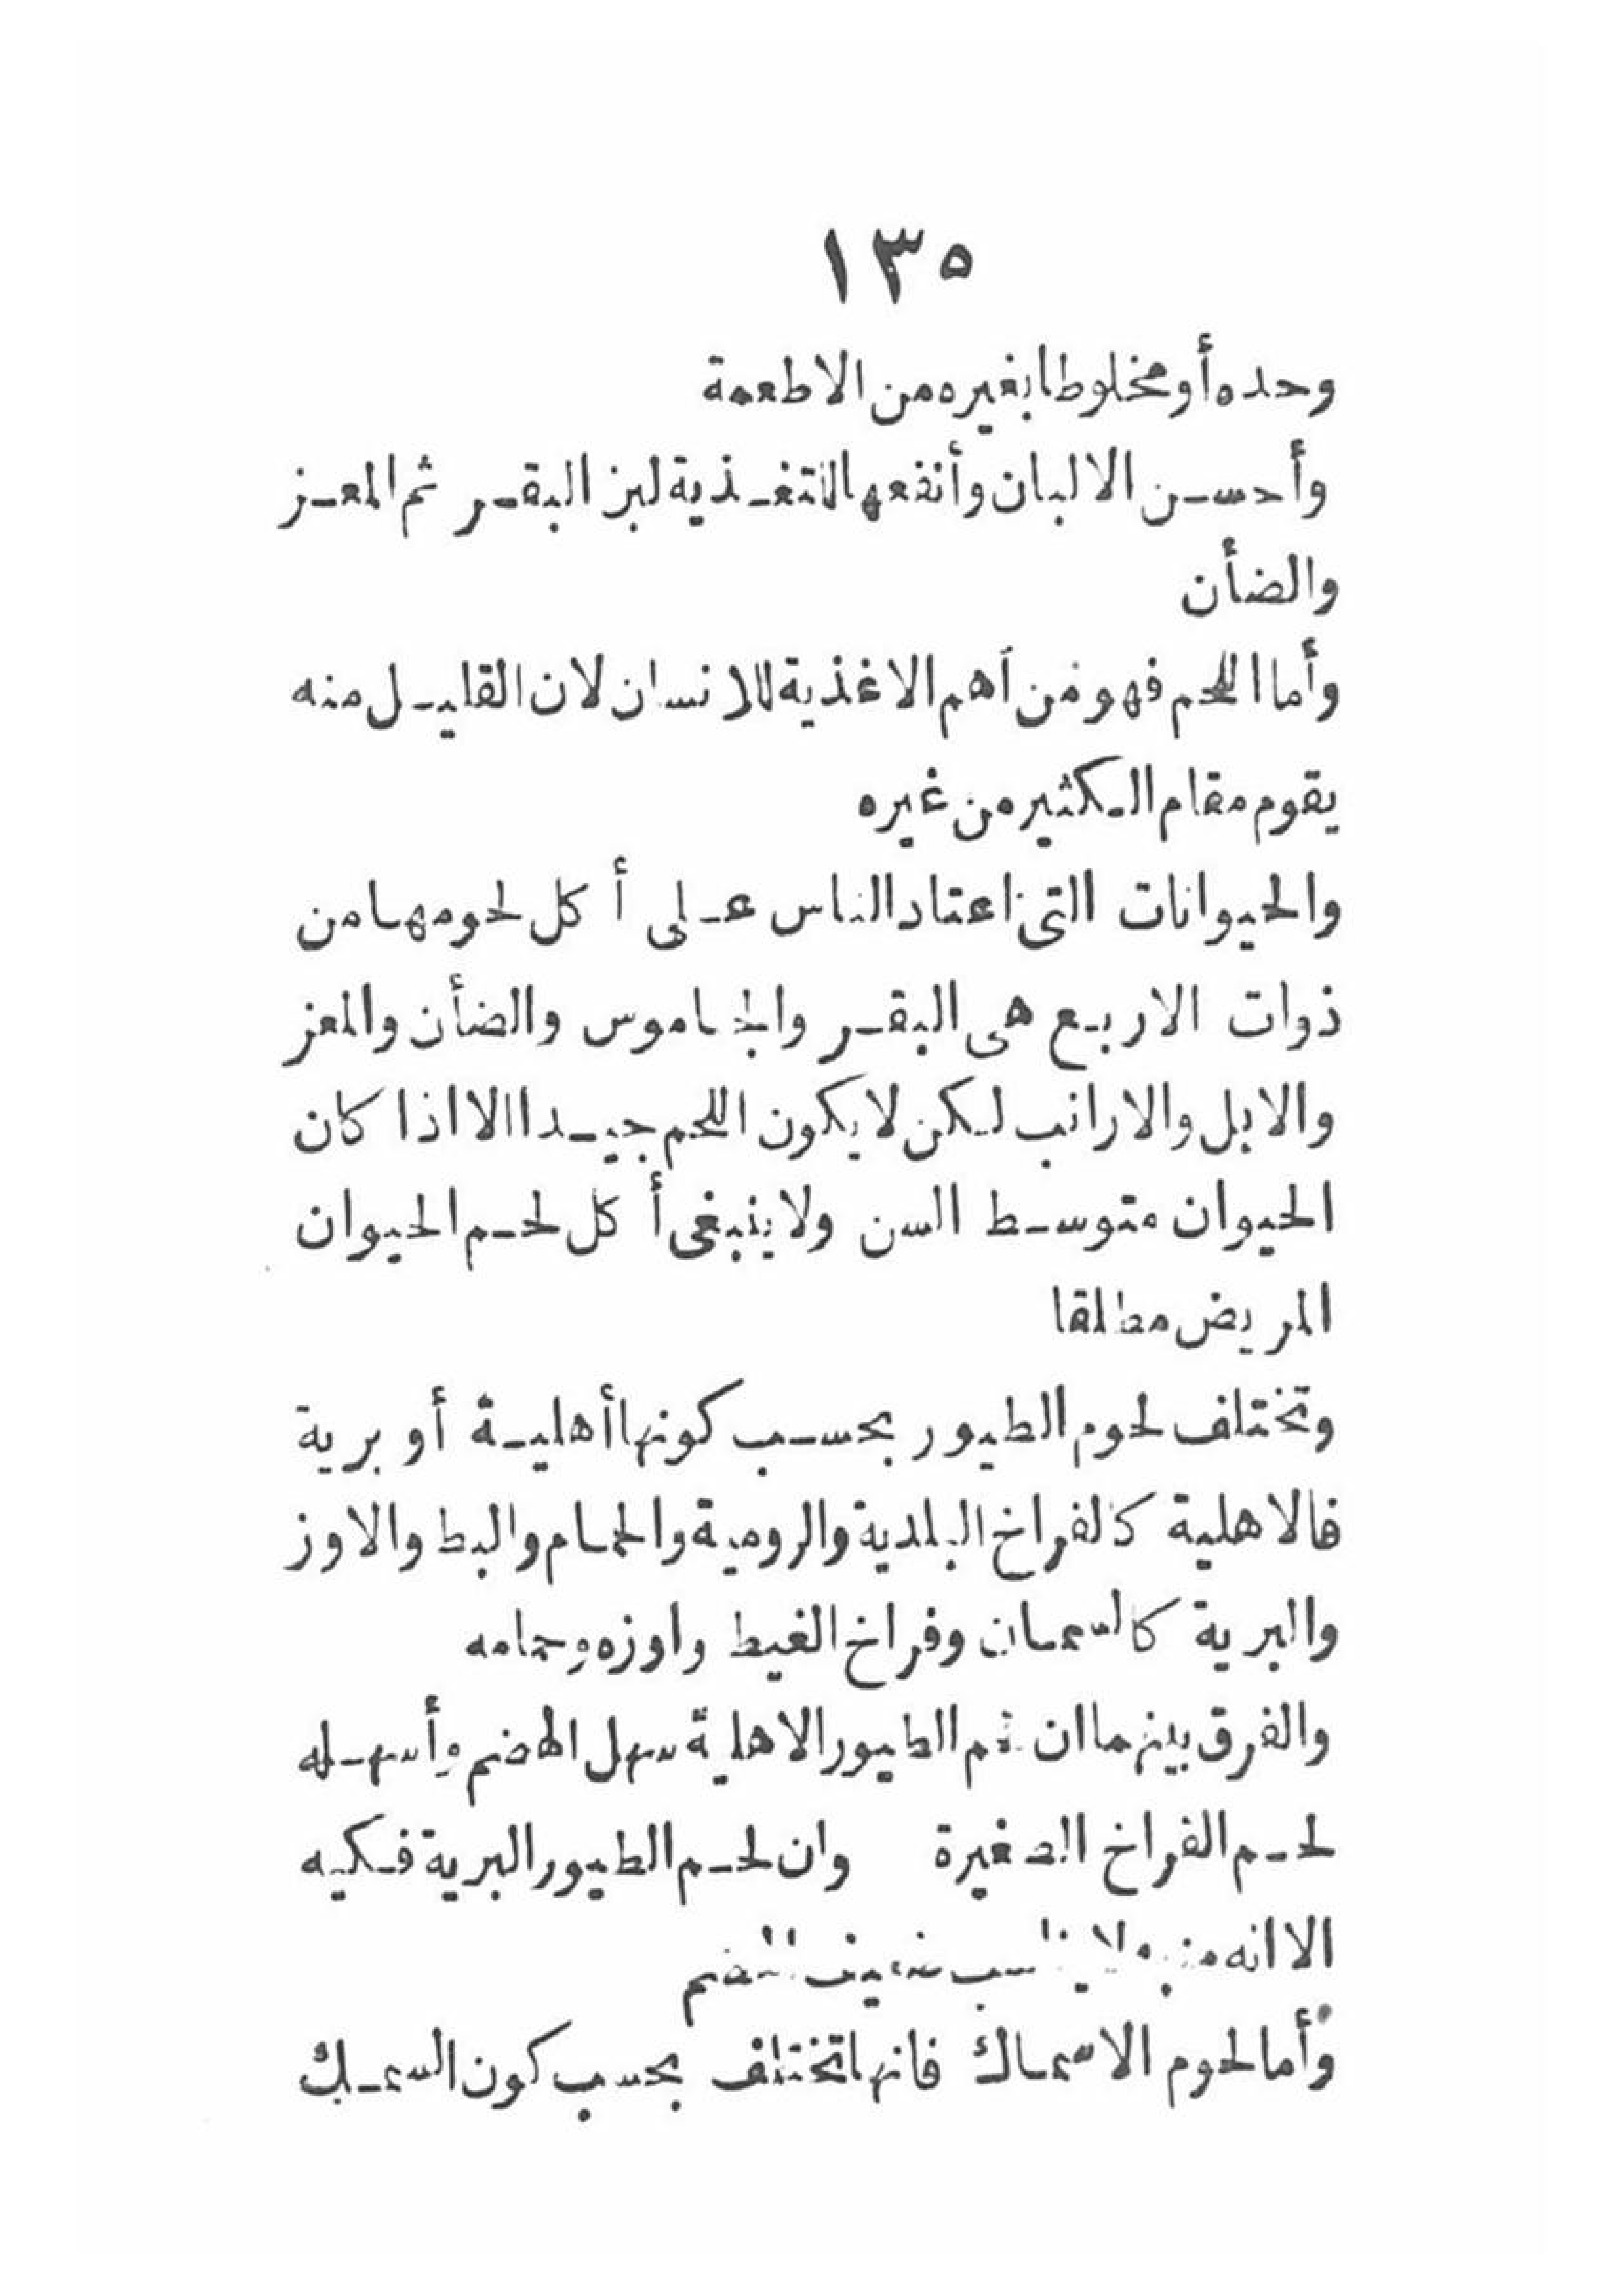 ١٣٥
وحده أو مخلوطا بغيره من الاطعمة
وأحسن الالبان وأنفعها للتغذية لبن البقر ثم المعز
والضأن
وأما اللحم فهو من أهم الاغذية للانسان لان القليل منه
يقوم مقام الكثير من غيره
والحيوانات التى اعتاد الناس على أكل لحومها من
ذوات الاربع هى البقر والجاموس والضأن والمعز
والابل والارانب لكن لا يكون اللحم جيدا الا اذا كان
الحيوان متوسط السن ولا ينبغى أكل لحم الحيوان
المريض مطلقا
وتختلف لحوم الطيور بحسب كونها أهلية أو برية
فالاهلية كالفراخ البلدية والرومية والحمام والبط والاوز
والبرية كالسمان وفراخ الغيط واوزه وحمامه
والفرق بينهما ان لحم الطيور الاهلية سهل الهضم وأسهله
لحم الفراخ الصغيرة وان لحم الطيور البرية فكيه
الا انه منبه لا يناسب ضعيف الهضم
وأما لحوم الاسماك فانها تختلف بحسب كون السمك